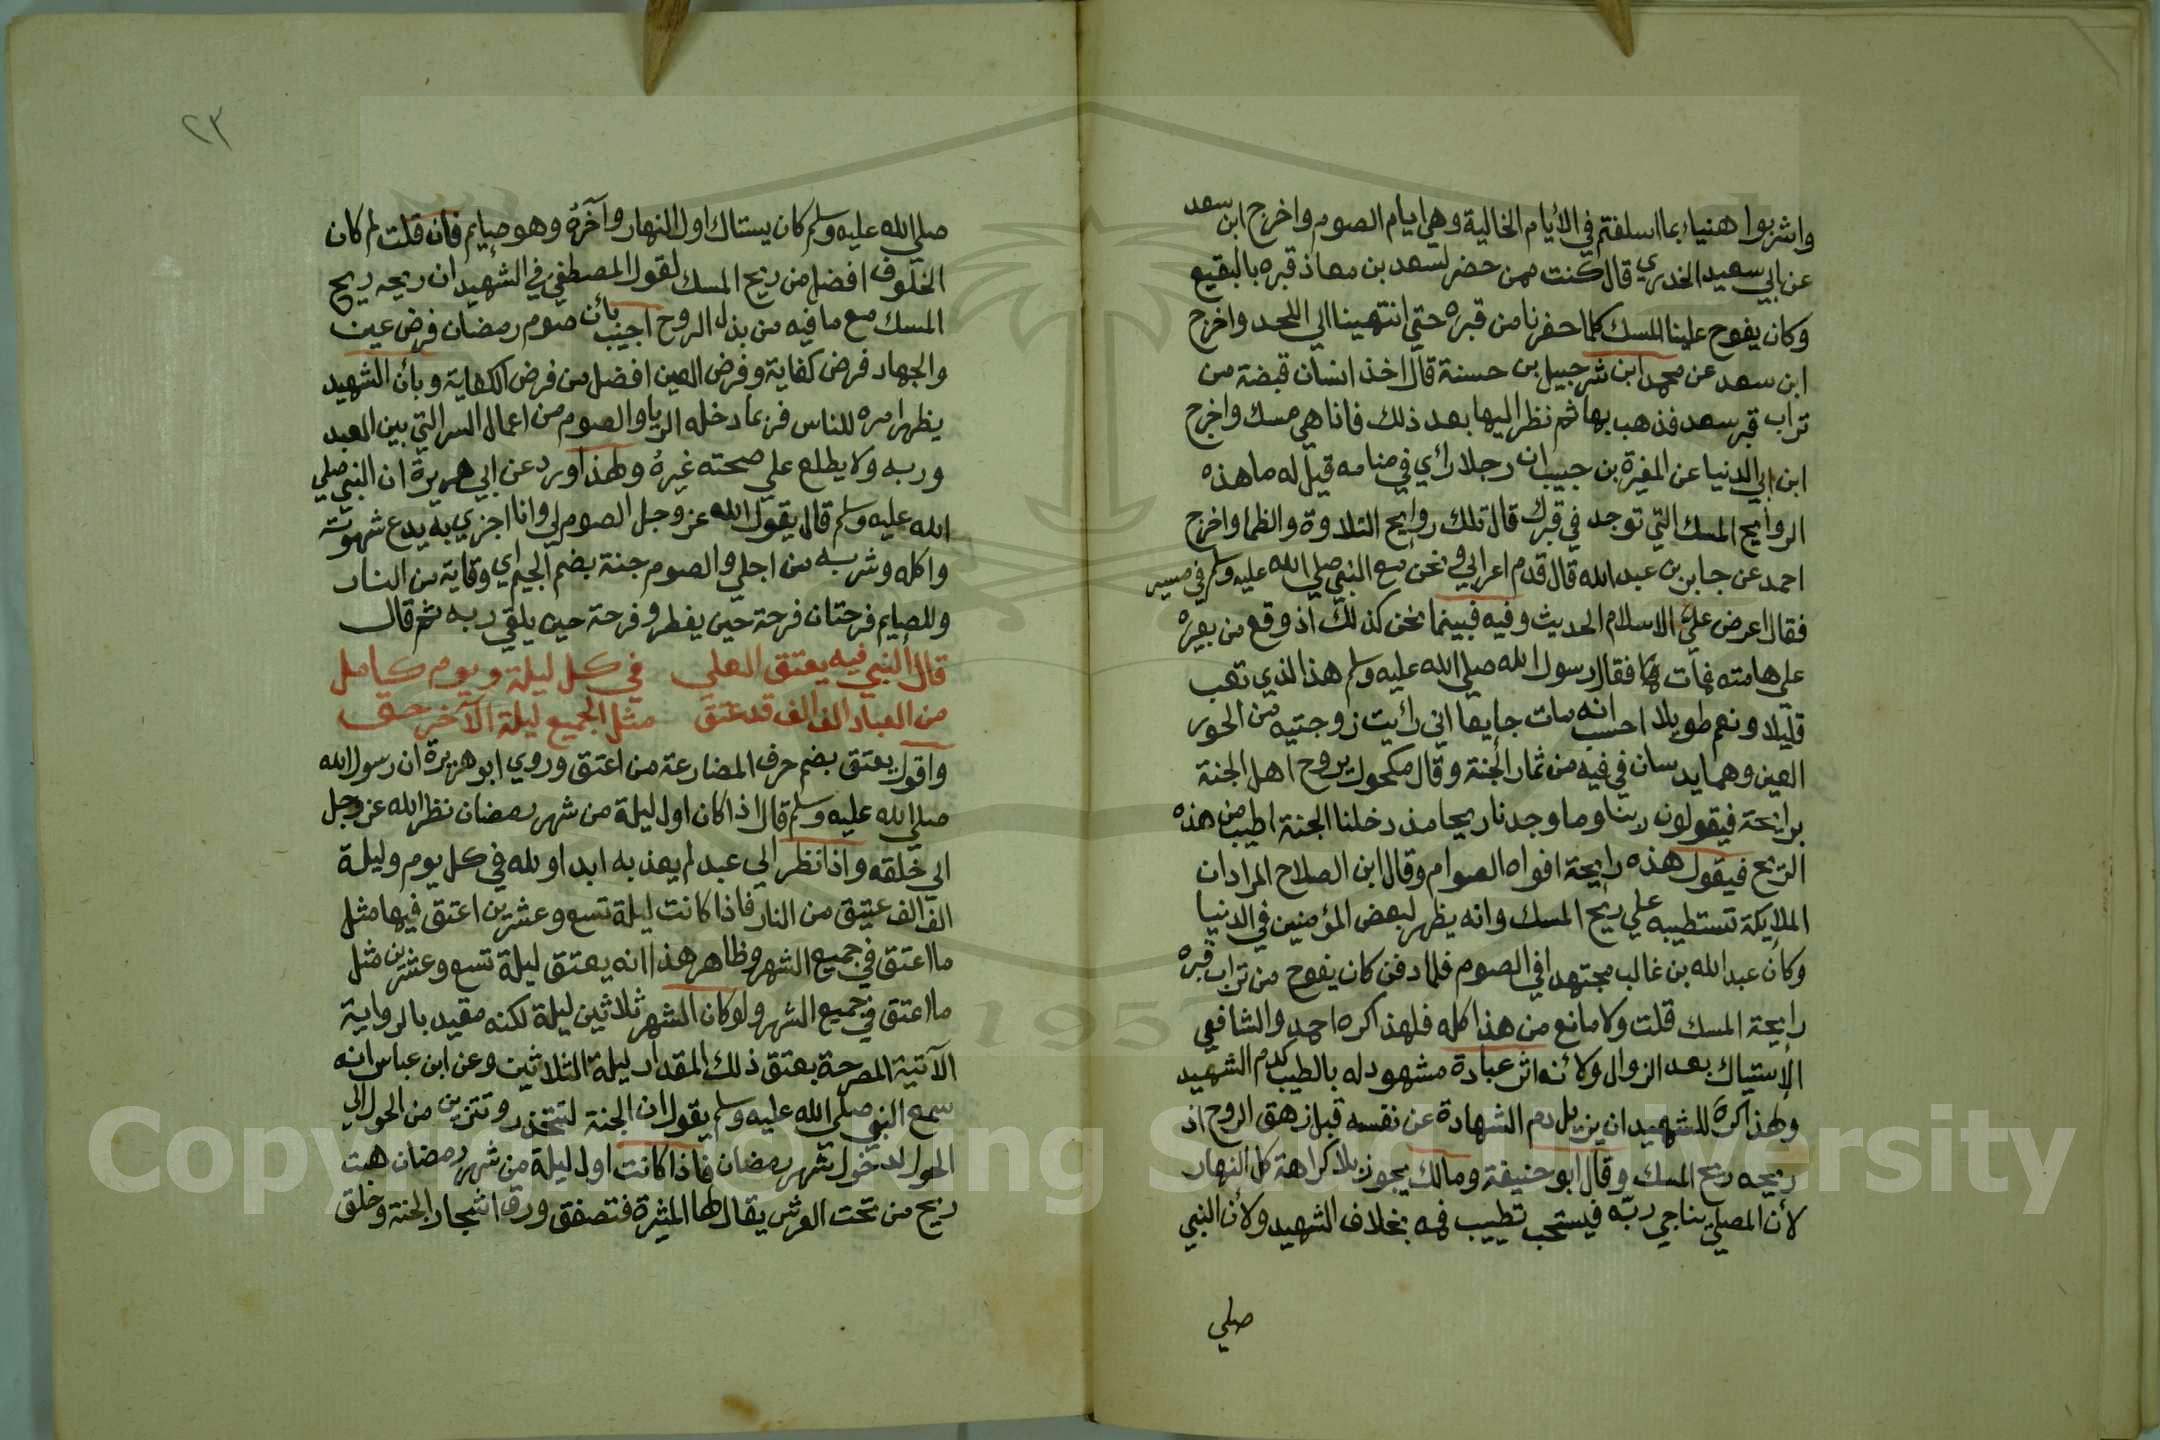 واشربوا هنياء بما اسلفتم في الأيام الخالية وهي ايام الصوم واخرج ابن سعد
عن ابي سعيد الخدري قال كنت ممن حضر لسعد بن معاذ قبره بالبقيع
وكان يفوح علينا المسك كلما حفرنا من قبره حتي انتهينا الي اللحد واخرج
ابن سعد عن محمد ابن شرجبيل بن حسنة قال اخذ انسان قبضة من
تراب قبر سعد فذهب بها ثم نظر اليها بعد ذلك فاذا هي مسك واخرج
ابن ابي الدنيا عن المغيرة بن حبيب ان رجلا رأي في منامه قيل له ما هذه
الروايح المسك التي توجد في قبرك قال تلك روايح التلاوة والظما واخرج
احمد عن جابر بن عبد الله قال قدم اعرابي ونحن مع النبي صلي الله عليه وسلم في مسير
فقال اعرض علي الاسلام الحديث وفيه فبينما نحن كذلك اذ وقع من بعيره
علي هامته فمات فقال رسول الله صلي الله عليه وسلم هذا الذي تعب
قليلا ونعم طويلا احسب انه مات جايعا اني رأيت زوجتيه من الحور
العين وهما يدسان في فيه من ثمار الجنة وقال مكحول يروح اهل الجنة
برايحة فيقولون ربنا وما وجدنا ريحا مذ دخلنا الجنة اطيب من هذه
الريح فيقول هذه رايحة افواه الصوام وقال ابن الصلاح المراد ان
الملايكة تستطيبه علي ريح المسك وانه يظهر لبعض المؤمنين في الدنيا
وكان عبد الله بن غالب مجتهدا في الصوم فلما دفن كان يفوح من تراب قبره
رايحة المسك قلت ولا مانع من هذا كله فلهذا كره احمد والشافعي
الإستياك بعد الزوال ولأنه اثر عبادة مشهود له بالطيب كدم الشهيد
ولهذا كره للشهيد ان يزيل دم الشهادة عن نفسه قبل زهق الروح اذ
ريحه ريح المسك وقال ابو حنيفة ومالك يجوز بلا كراهة كل النهار
لأن المصلي يناجي ربه فيستحب تطييب فمه بخلاف الشهيد ولأن النبي
صلي
٢٣
صلي الله عليه وسلم كان يستاك اول النهار وآخره وهو صايم فان قلت لم كان
الخلوف افضل من ريح المسك لقول المصطفي في الشهيد ان ريحه ريح
المسك مع ما فيه من بذل الروح اجيب بأن صوم رمضان فرض عين
والجهاد فرض كفاية وفرض العين افضل من فرض الكفاية وبأن الشهيد
يظهر امره للناس فربما دخله الريا والصوم من اعمال السر التي بين العبد
وربه ولا يطلع علي صحته غيره ولهذا ورد عن ابي هريرة ان النبي صلي
الله عليه وسلم قال يقول الله عز وجل الصوم لي وانا اجزي به يدع شهوته
واكله وشربه من اجلي والصوم جنة بضم الجيم اي وقاية من النار
وللصايم فرحتان فرحة حين يفطر وفرحة حين يلقي ربه ثم قال
قال النبي فيه يعتق العلي في كل ليلة ويوم كامل
من العباد الف الف قد عتق مثل الجميع ليلة الآخر حق
واقول يعتق بضم حرف المضارعة من اعتق وروي ابو هريرة ان رسول الله
صلي الله عليه وسلم قال اذا كان اول ليلة من شهر رمضان نظر الله عز وجل
الي خلقه واذا نظر الي عبد لم يعذبه ابدا ولله في كل يوم وليلة
الف الف عتيق من النار فاذا كانت ليلة تسع وعشرين اعتق فيها مثل
ما اعتق في جميع الشهر وظاهر هذا انه يعتق ليلة تسع وعشرين مثل
ما اعتق في جميع الشهر ولو كان الشهر ثلاثين ليلة لكنه مقيد بالرواية
الآتية المصرحة بعتق ذلك المقدار ليلة الثلاثين وعن ابن عباس انه
سمع النبي صلي الله عليه وسلم يقول ان الجنة لتتخذر وتتزين من الحول الي
الحول لدخول شهر رمضان فاذا كانت اول ليلة من شهر رمضان هبت
ريح من تحت العرش يقال لها المثيرة فتصفق ورق اشجار الجنة وخلق